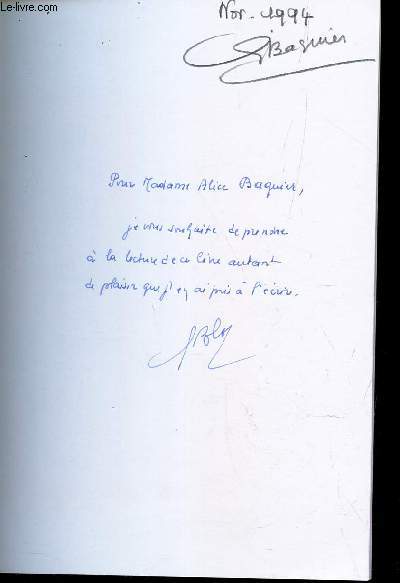 Le-livre.com
Nov. 1994
Baquier
Pour Madame Alice Baquier,
je vous souhaite de prendre
à la lecture de ce livre autant
de plaisir que j'en ai pris à l'écrire.